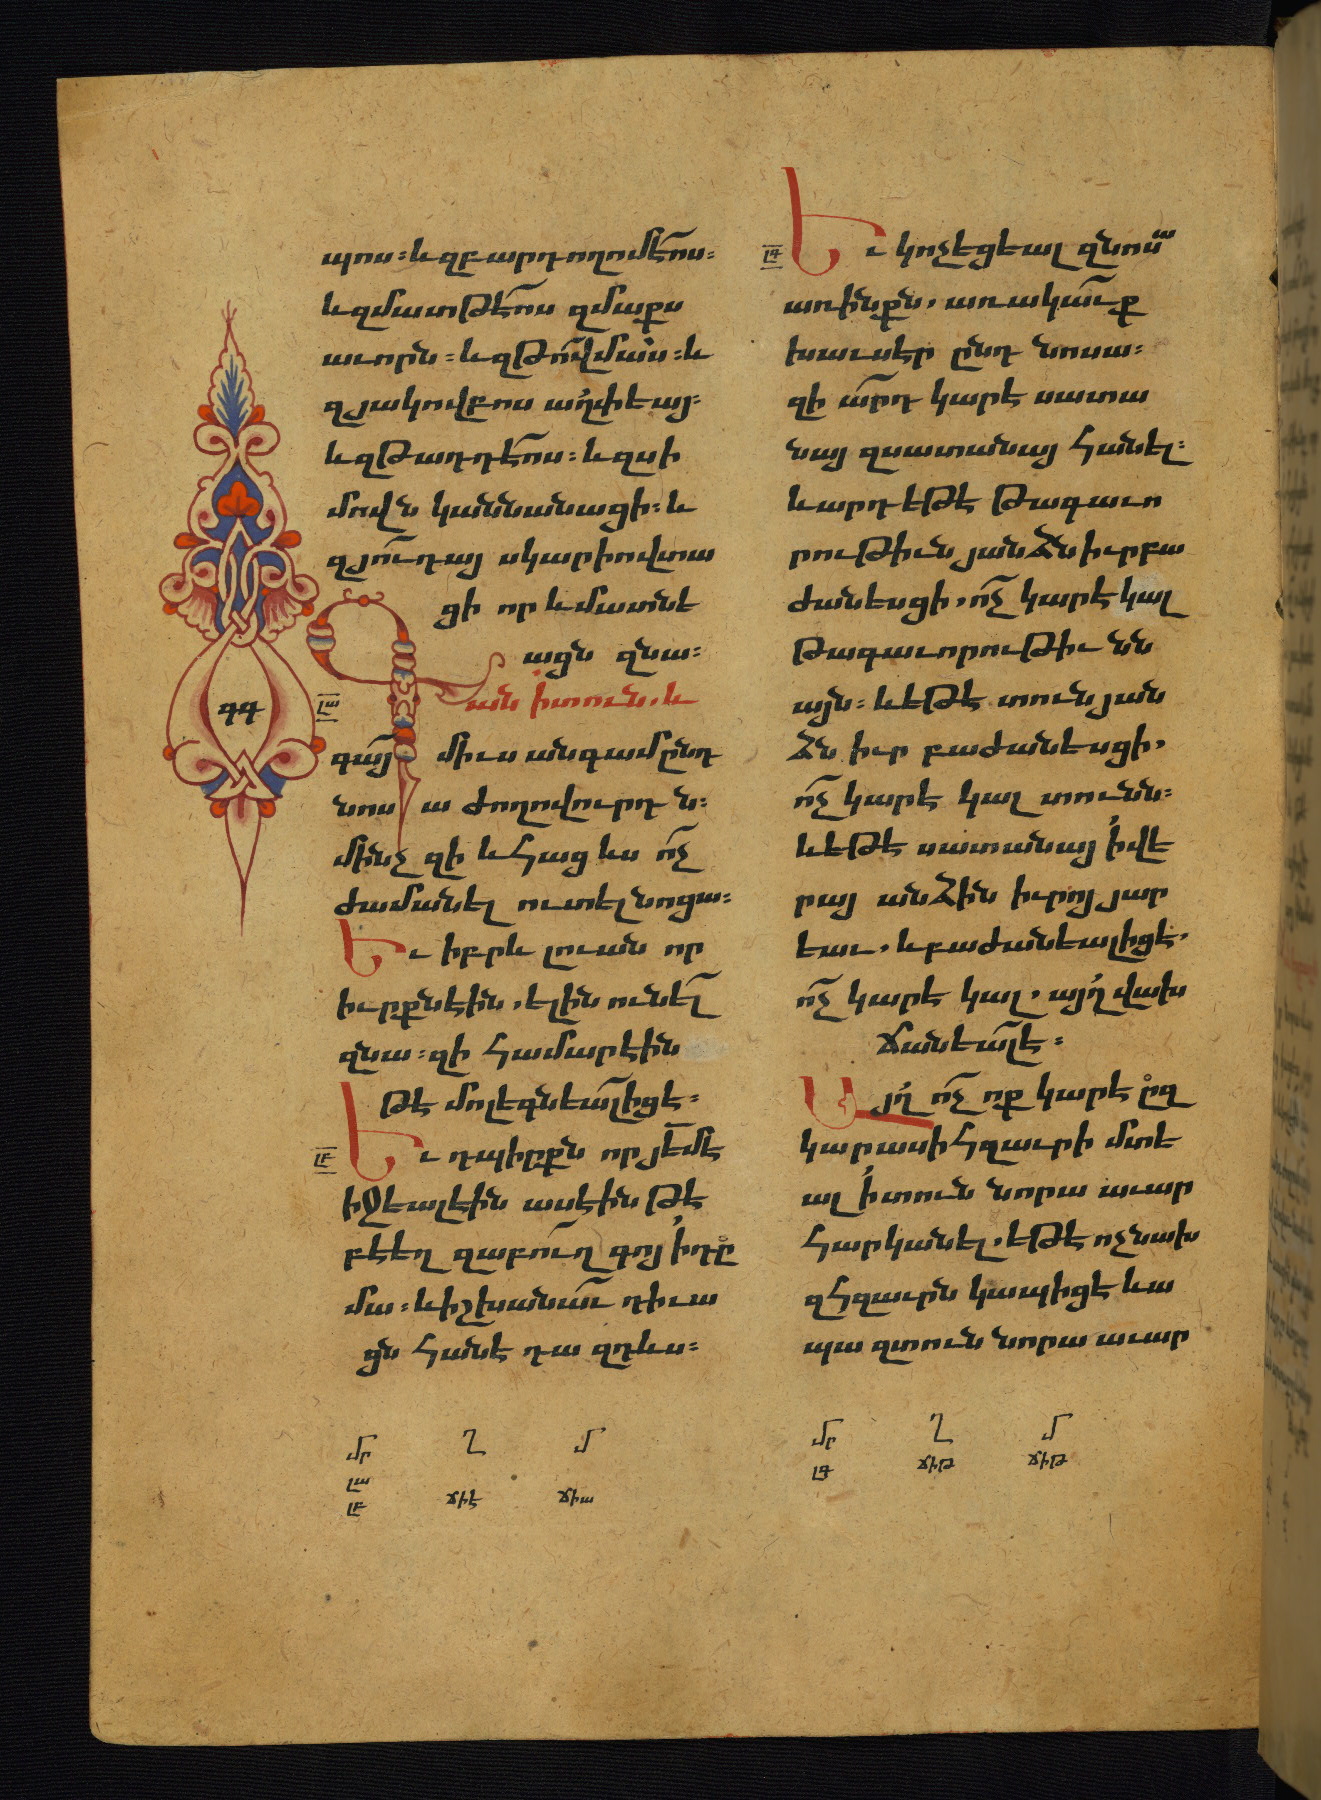 պոս։ և զբարդողոմէոս։
և զմատթէոս զմաքս
աւորն։ և զթովմաս։ և
զյակովբոս աղփեայ։
և զթադդէոս։ և զսի
մովն կանանացի։ և
զյուդայ սկարիովտա
ցի որ և մատնէ
ացն զնա։
ան ի տուն. և
գայ միւս անգամ ընդ
նոսա ժողովուրդն։
մինչ զի և հաց ևս ոչ
ժամանել ուտել նոցա։
Եւ իբրև լուան որ
իւրքն էին, ելին ունել
զնա։ զի համարէին
թէ մոլեգնեալ իցէ։
Եւ դպիրքն որ յէմէ
իջեալ էին ասէին թէ
բէեղզաբուղ գոյ ի դը
մա։ և իշխանաւ դիւա
ցն հանէ դա զդևս։
Եւ կոչեցեալ զնոսա
առ ինքն, առակաւք
խաւսէր ընդ նոսա։
զի արդ կարէ սատա
նայ զսատանայ հանել։
և արդ եթէ թագաւո
րութիւն յանձն իւր բա
ժանեսցի, ոչ կարէ կալ
թագաւորութիւնն
այն։ և եթէ տուն յան
ձն իւր բաժանեսցի,
ոչ կարէ կալ տունն։
և եթէ սատանայ ի վե
րայ անձին իւրոյ յար
եաւ, և բաժանեալ իցէ,
ոչ կարէ կալ, այղ վախ
ճանեալ է։
Այղ ոչ ոք կարէ ըզ
կարասի հզաւրի մտե
ալ ի տուն նորա աւար
հարկանել, եթէ ոչ նախ
զհզաւրն կապիցէ և ա
պա զտուն նորա աւար
գգ
լա
լբ
լգ
մր Ղ մ
լա
լբ ճիէ ճիա
մր Ղ մ
լգ ճիթ ճիթ